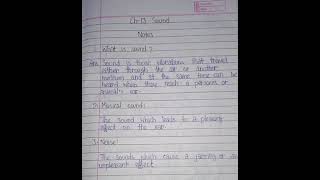 Ch-13 Sound
Notes
1. What is sound?
Ans Sound is vibrations that travel
either through the air or another
medium and at the same time can be
heard when they reach a persons or
animal's ear.
2. Musical sound:
The sound which leads to a pleasing
effect on the ear.
3. Noise:
The sounds which cause a jarring or an
unpleasent effect.